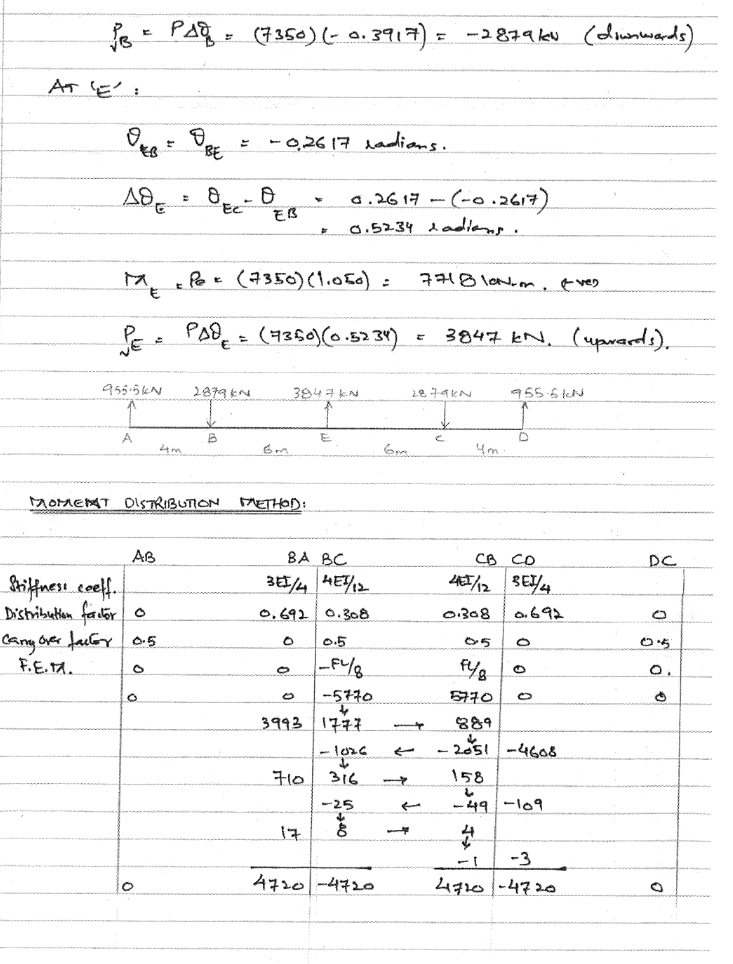 P_vB = PΔθ_B = (7350)(-0.3917) = -2879 kN (downwards)
AT 'E':
θ_EB = θ_BE = -0.2617 radians.
Δθ_E = θ_EC - θ_EB = 0.2617 - (-0.2617)
= 0.5234 radians.
M_E = Pe = (7350)(1.050) = 7718 kN.m.
P_vE = PΔθ_E = (7350)(0.5234) = 3847 kN. (upwards).
955.5kN 2879kN 3847kN 2879kN 955.5kN
A B E C D
4m 6m 6m 4m.
MOMENT DISTRIBUTION METHOD:
AB BA BC CB CD DC
Stiffness coeff. 3EI/4 4EI/12 4EI/12 3EI/4
Distribution factor 0 0.692 0.308 0.308 0.692 0
Carry over factor 0.5 0 0.5 0.5 0 0.5
F.E.M. 0 0 -FL/8 FL/8 0 0.
0 0 -5770 5770 0 0
3993 1777 → 889
-1026 ← -2051 -4608
710 316 → 158
-25 ← -49 -109
17 8 → 4
-1 -3
0 4720 -4720 4720 -4720 0